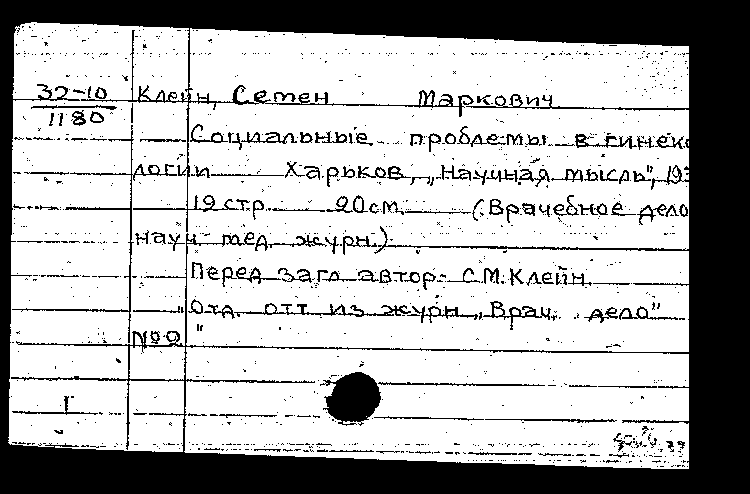 32-10
1180
Клейн, Семен Маркович
Социальные проблемы в гинеко
логии Харьков, „Научная мысль", 193
19 стр. 20 см. (Врачебное дело
науч- мед. журн.)
Перед загл автор- С.М. Клейн.
"Отд. отт. из журн „Врач. дело"
№ 2 "
Г